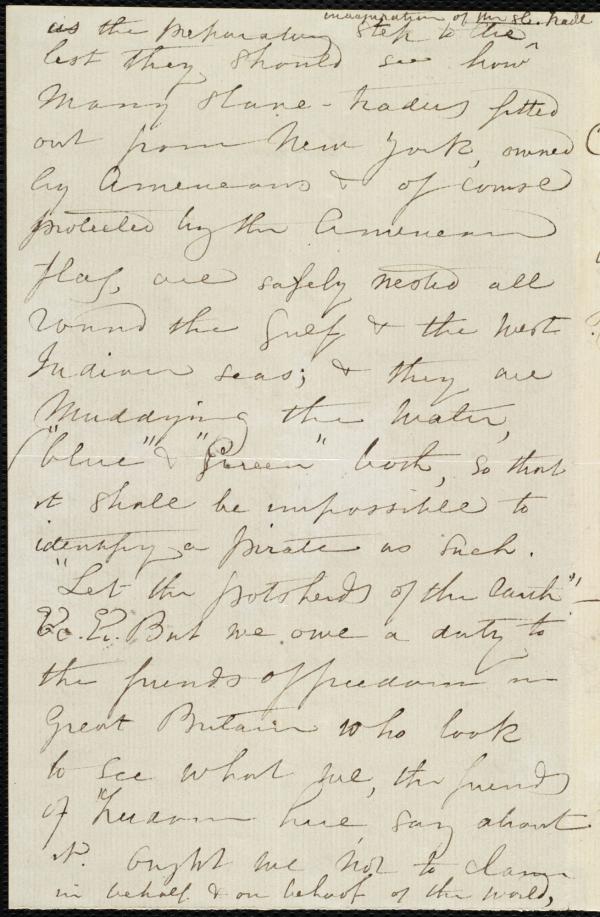 inauguration of the sl. trade
as the preparatory step to the
lest they should see how
many slave-traders fitted
out from New York, owned
by Americans & of course
protected by the American
flag, are safely nested all
round the gulf & the West
Indian seas; & they are
muddying the water,
"blue" & "green" both, so that
it shall be impossible to
identify a pirate as such.
"Let the potsherds of the earth"—
&c. &c. But we owe a duty to
the friends of freedom in
Great Britain who look
to see what we, the friends
of freedom here, say about
it. Ought we not to claim
in behalf & on behoof of the world,